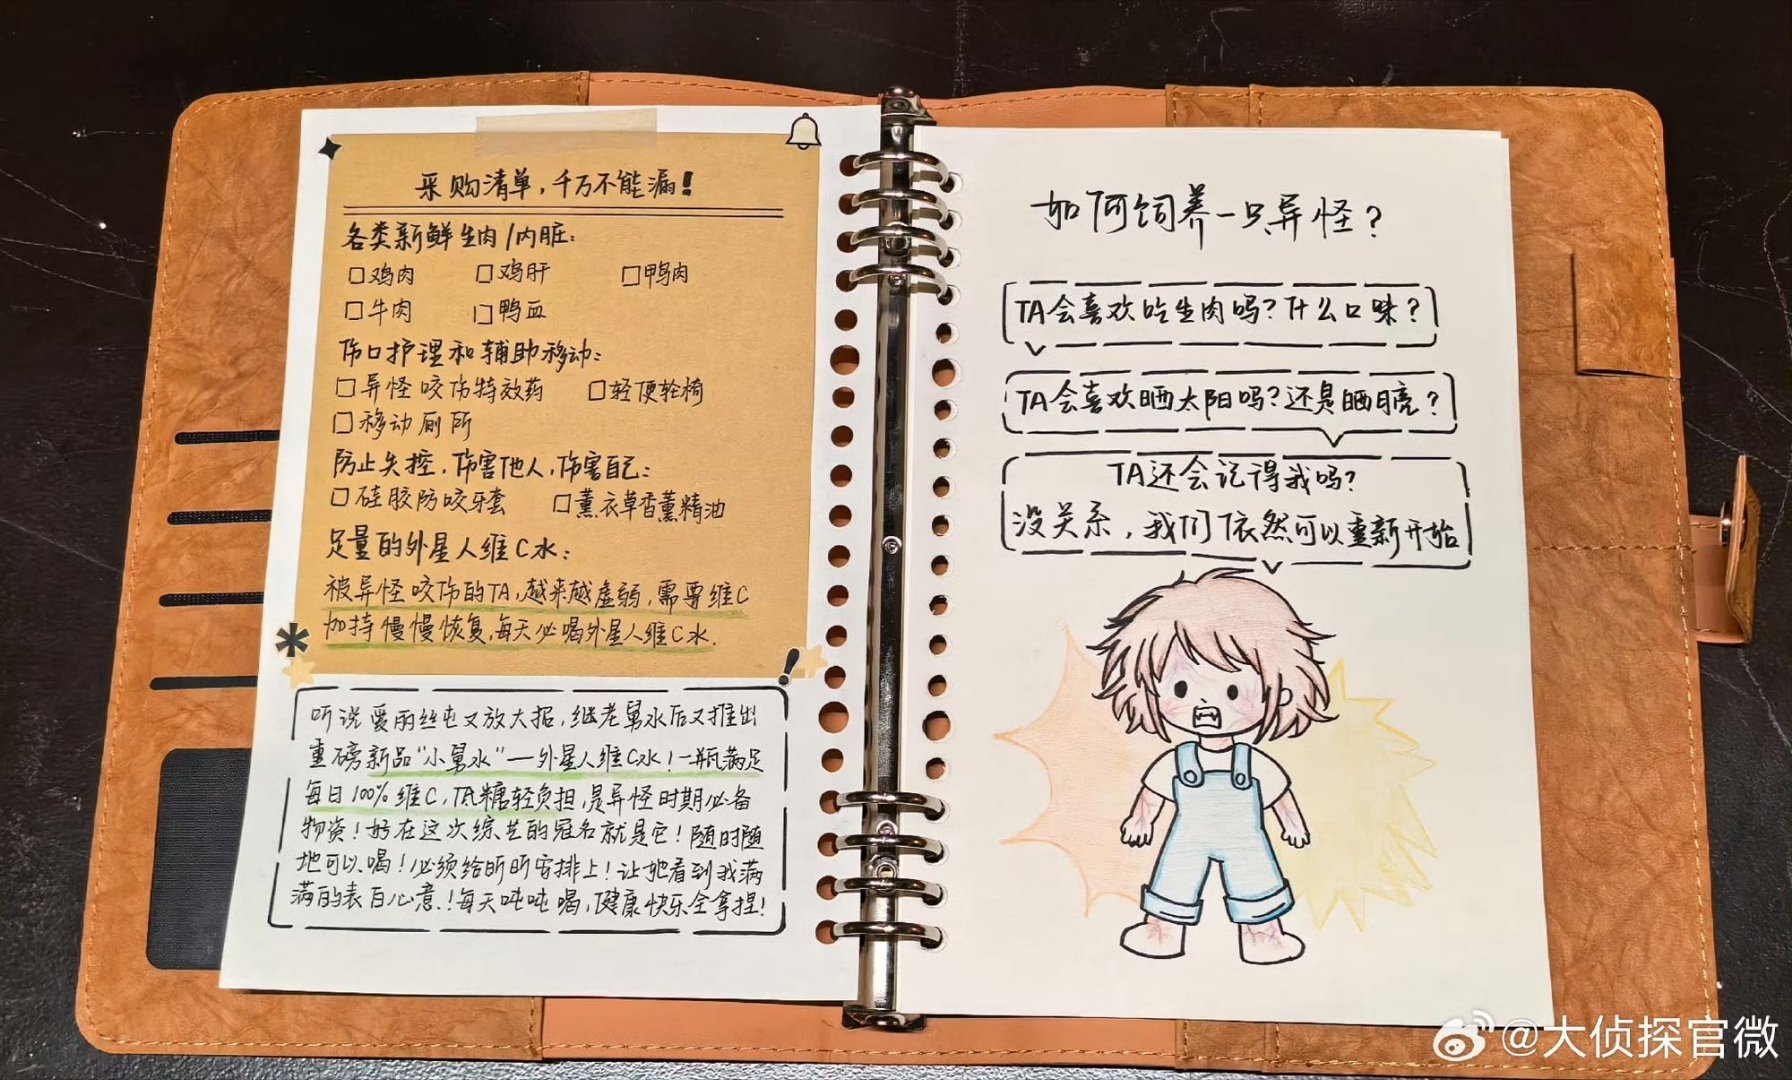 采购清单，千万不能漏！
各类新鲜生肉/内脏：
□鸡肉 □鸡肝 □鸭肉
□牛肉 □鸭血
伤口护理和辅助移动：
□异怪咬伤特效药 □轻便轮椅
□移动厕所
防止失控，伤害他人，伤害自己：
□硅胶防咬牙套 □薰衣草香薰精油
足量的外星人维C水：
被异怪咬伤的TA，越来越虚弱，需要维C
加持慢慢恢复，每天必喝外星人维C水.
听说爱丽丝屯又放大招，继老舅水后又推出
重磅新品“小舅水”—外星人维C水！一瓶满足
每日100%维C，低糖轻负担，是异怪时期必备
物资！好在这次综艺的冠名就是它！随时随
地可以喝！必须给昕昕安排上！让她看到我满
满的表白心意！每天吨吨喝，健康快乐全拿捏！
如何饲养一只异怪？
TA会喜欢吃生肉吗？什么口味？
TA会喜欢晒太阳吗？还是晒月亮？
TA还会记得我吗？
没关系，我们依然可以重新开始
@大侦探官微